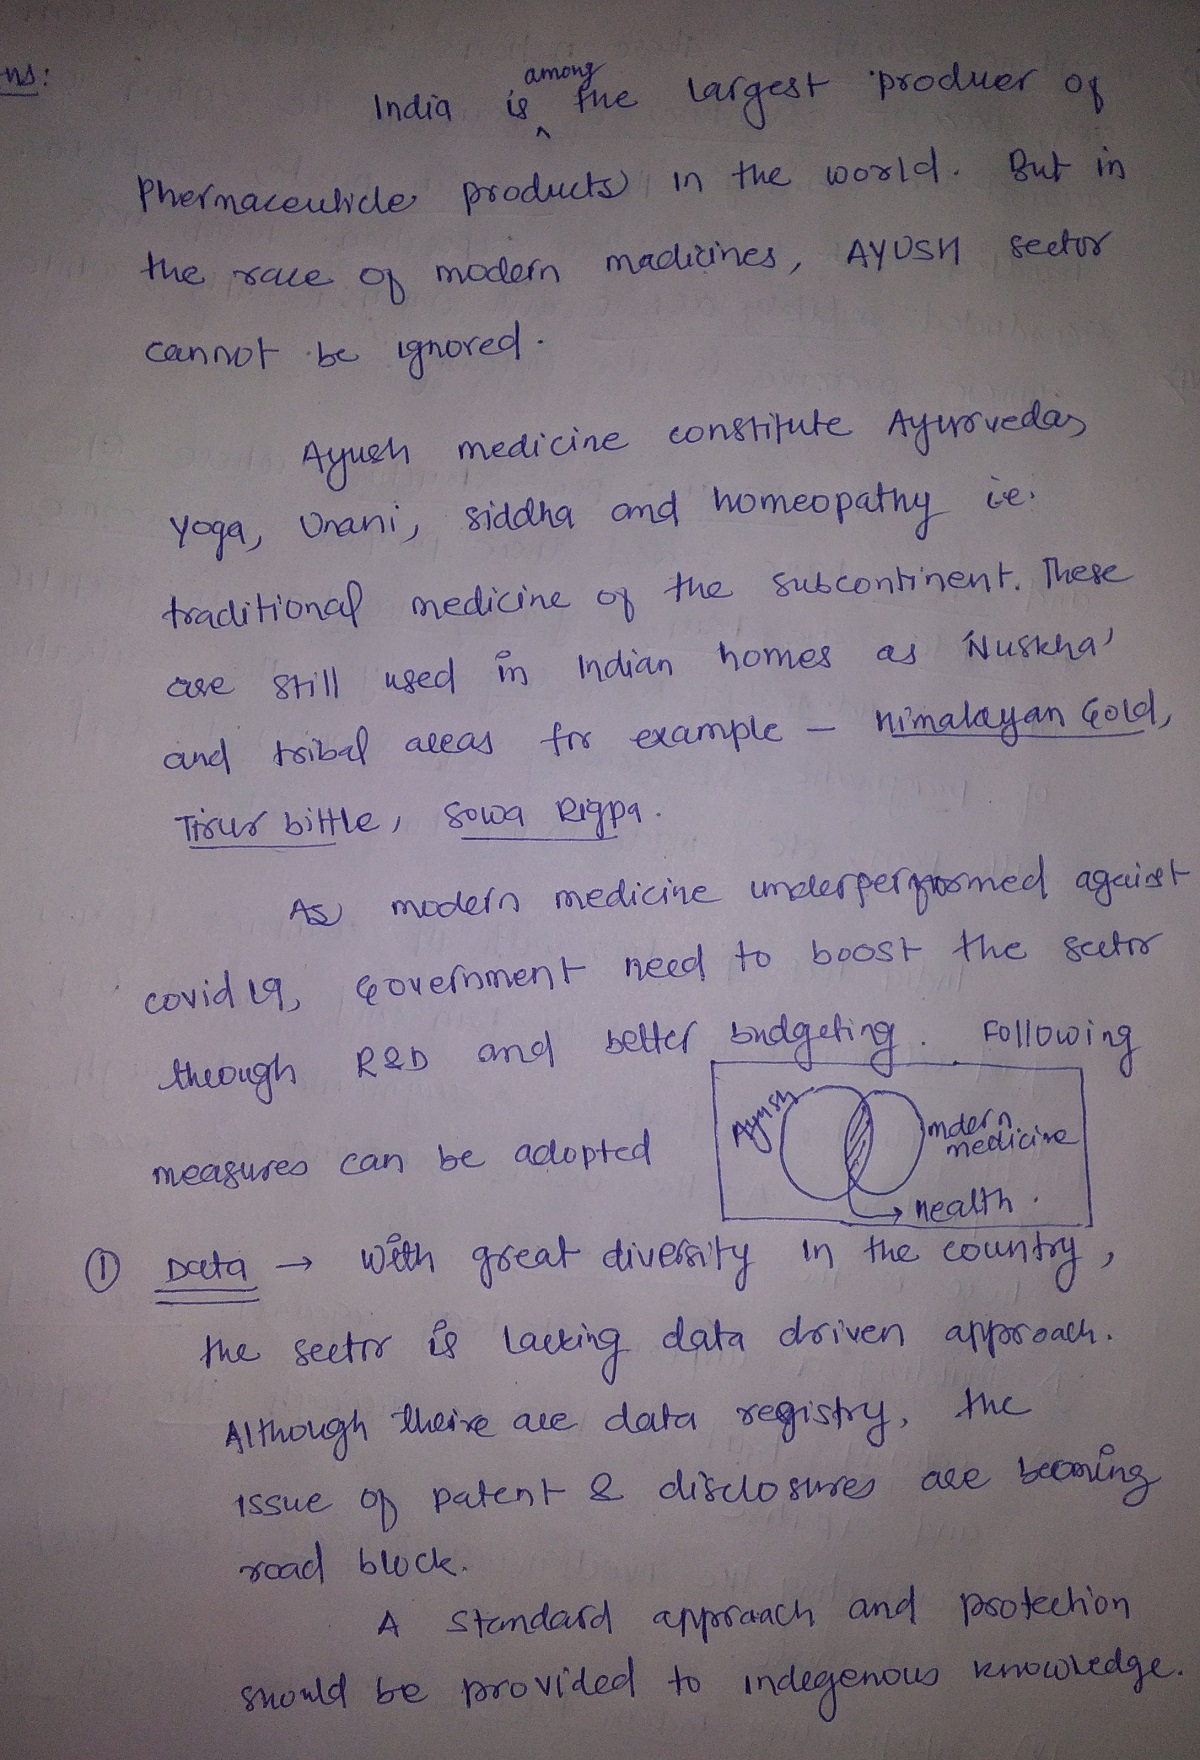 ns:
among
India is ^ the largest producer of
Phermaceuticle products in the world. But in
the race of modern madicines, AYUSH sector
cannot be ignored.
Ayush medicine constitute Ayurvedas
Yoga, Unani, siddha and homeopathy i.e.
traditional medicine of the subcontinent. These
are still used in Indian homes as 'Nuskha'
and tribal areas for example – Himalayan Gold,
Tirur bittle, Sowa Rigpa.
As modern medicine underperformed against
covid 19, Government need to boost the sector
through R&D and better budgeting. Following
measures can be adopted
Ayush
modern
medicine
→ health.
① Data → With great diversity in the country,
the sector is lacking data driven approach.
Although theire are data registry, the
issue of patent & disclosures are becoming
road block.
A standard appraach and protection
should be provided to indegenous knowledge.